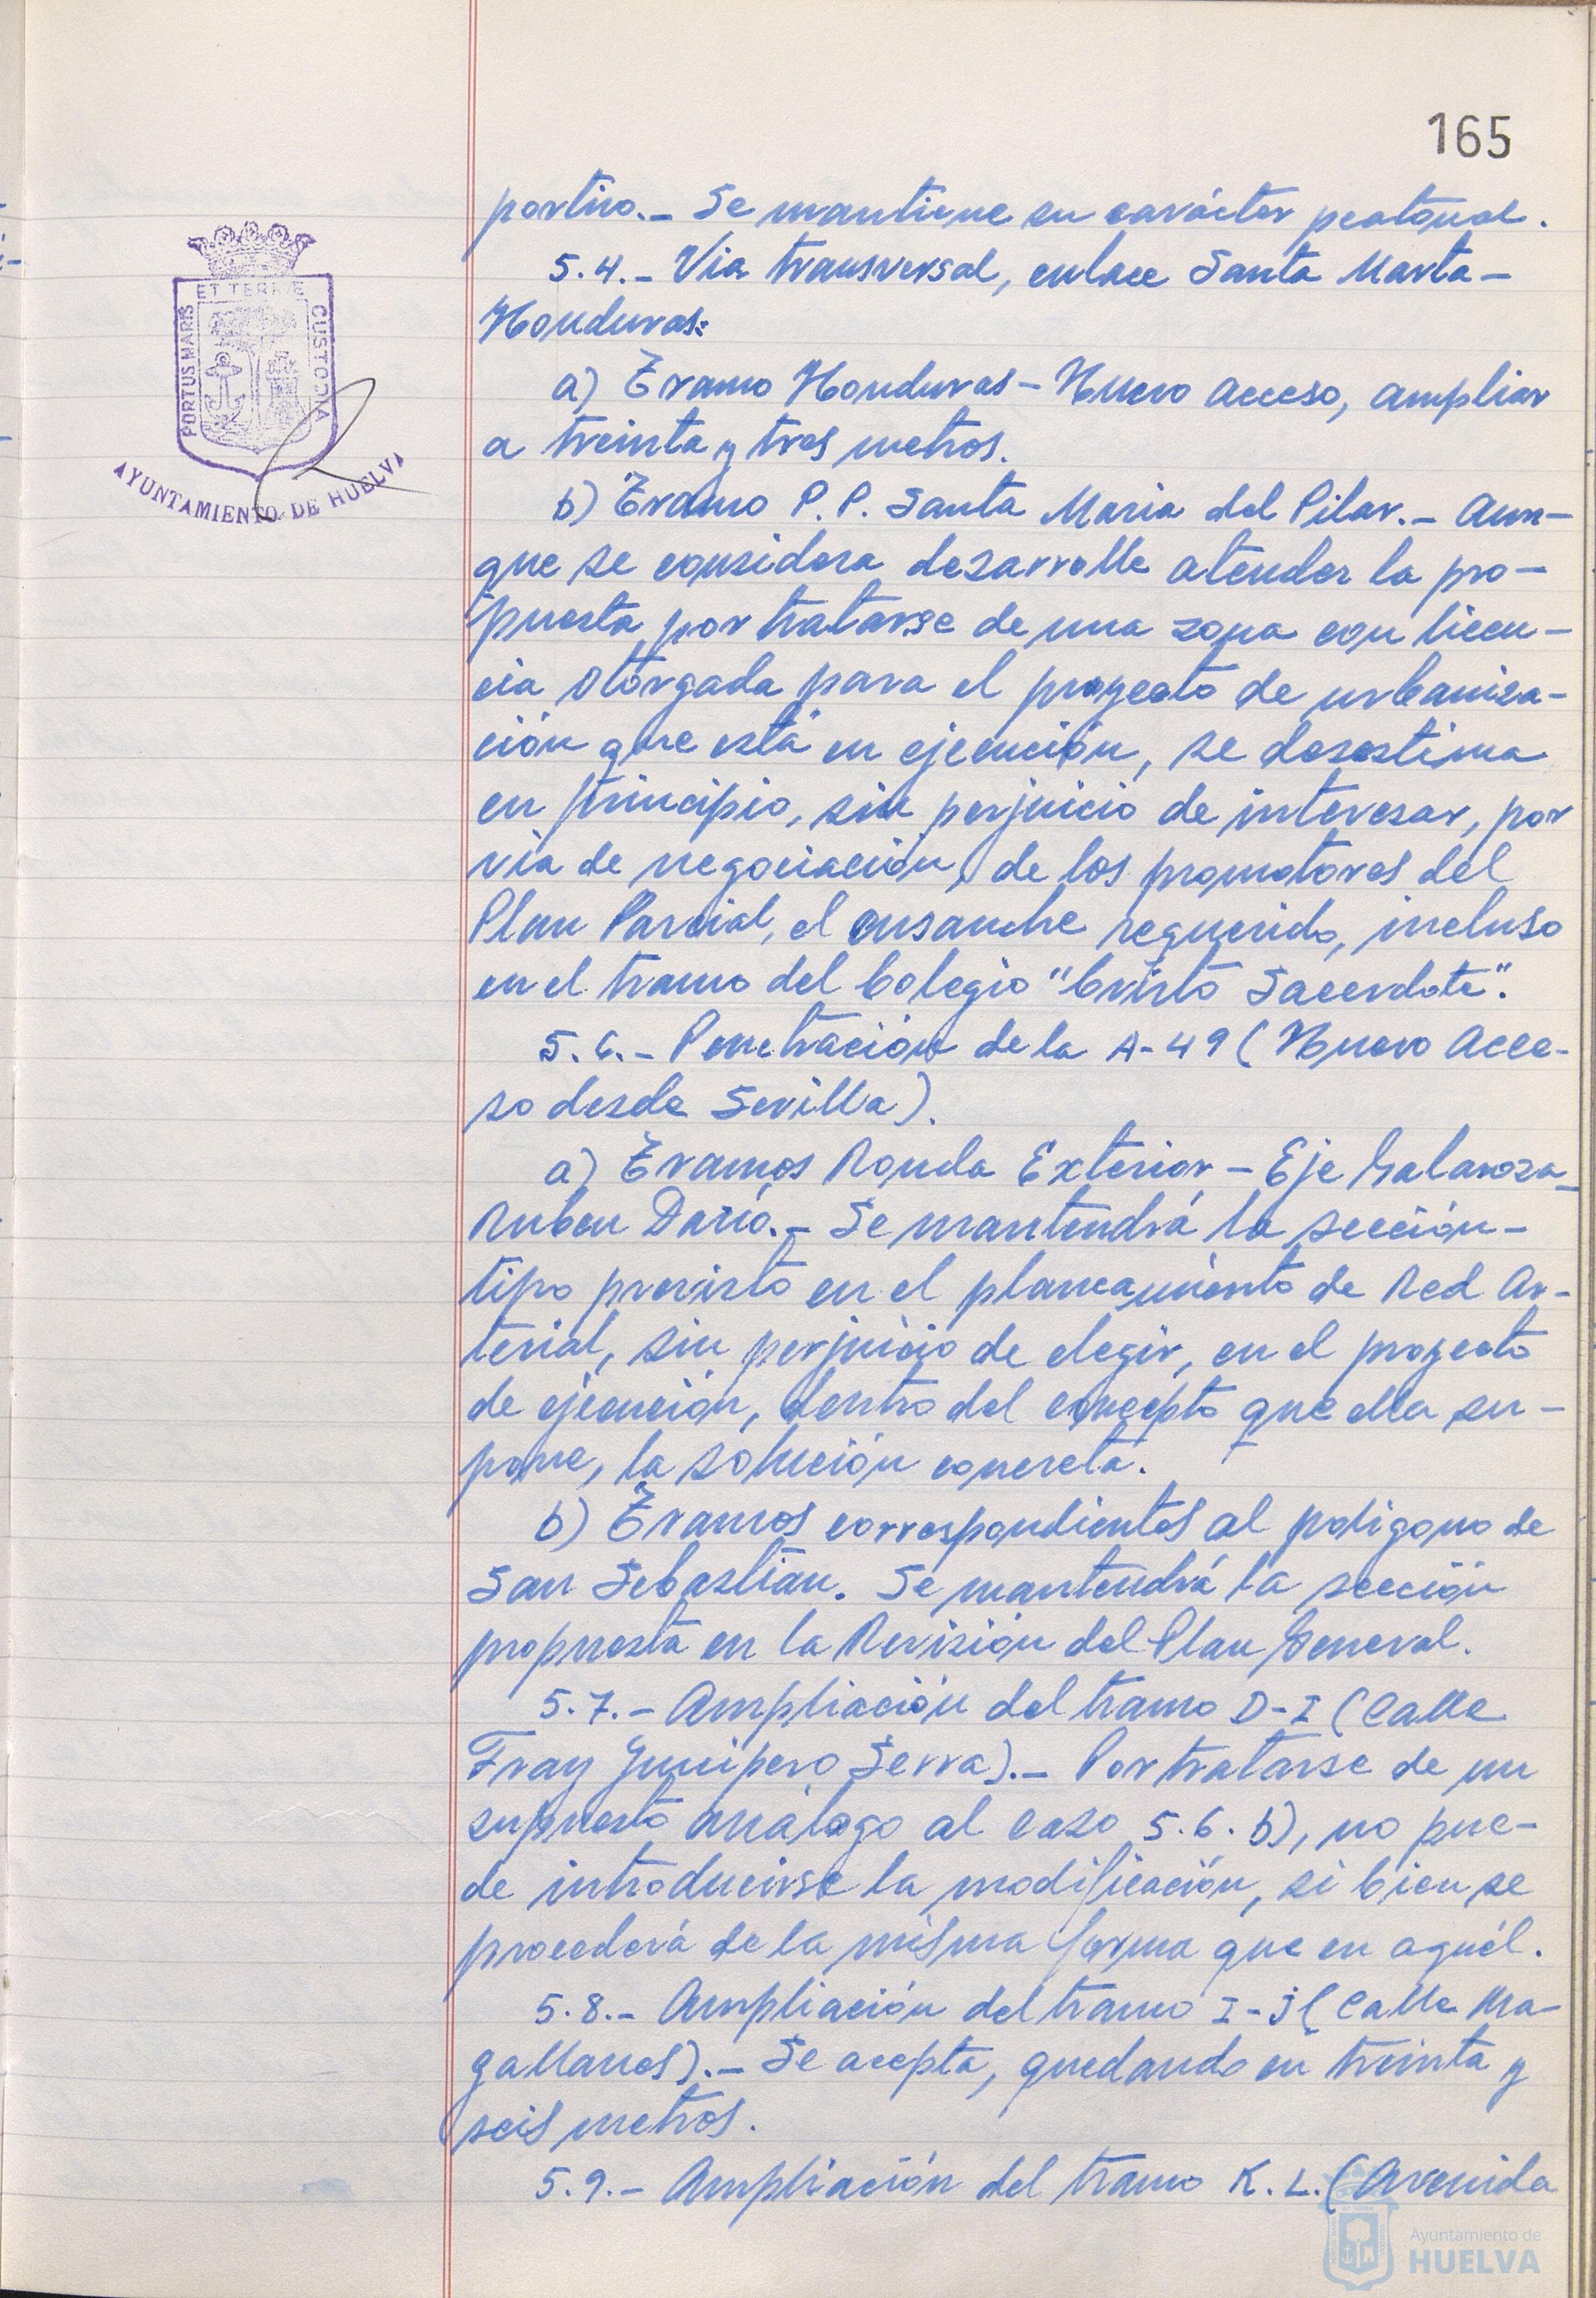 165
portivo.- Se mantiene su carácter peatonal.
5.4.- Via transversal, enlace Santa Marta-
Honduras:
a) Tramo Honduras-Nuevo Acceso, ampliar
a treinta y tres metros.
b) Tramo P.P. Santa Maria del Pilar.- Aun-
que se considera desarrolle atender la pro-
puesta por tratarse de una zona con licen-
cia otorgada para el proyecto de urbaniza-
ción que está en ejecución, se desestima
en principio, sin perjuicio de interesar, por
via de negociación, de los promotores del
Plan Parcial, el ensanche requerido, incluso
en el tramo del Colegio "Cristo Sacerdote".
5.6.- Penetración de la A-49 (Nuevo Acce-
so desde Sevilla).
a) Tramos Ronda Exterior - Eje Galaroza-
Ruben Dario.- Se mantendrá la sección-
tipo previsto en el planeamiento de Red Ar-
terial, sin perjuicio de elegir, en el proyecto
de ejecución, dentro del concepto que ella su-
pone, la solución concreta.
b) Tramos correspondientes al poligono de
San Sebastian. Se mantendrá la sección
propuesta en la Revisión del Plan General.
5.7.- Ampliación del tramo D-I (Calle
Fray Junipero Serra).- Por tratarse de un
supuesto análogo al caso 5.6.b), no pue-
de introducirse la modificación, si bien se
procederá de la misma forma que en aquél.
5.8.- Ampliación del tramo I-J (Calle Ma-
gallanes).- Se acepta, quedando en treinta y
seis metros.
5.9.- Ampliación del tramo K.L. (Avenida
PORTUS MARIS
ET TERRÆ
CUSTODIA
AYUNTAMIENTO DE HUELVA
Ayuntamiento de
HUELVA